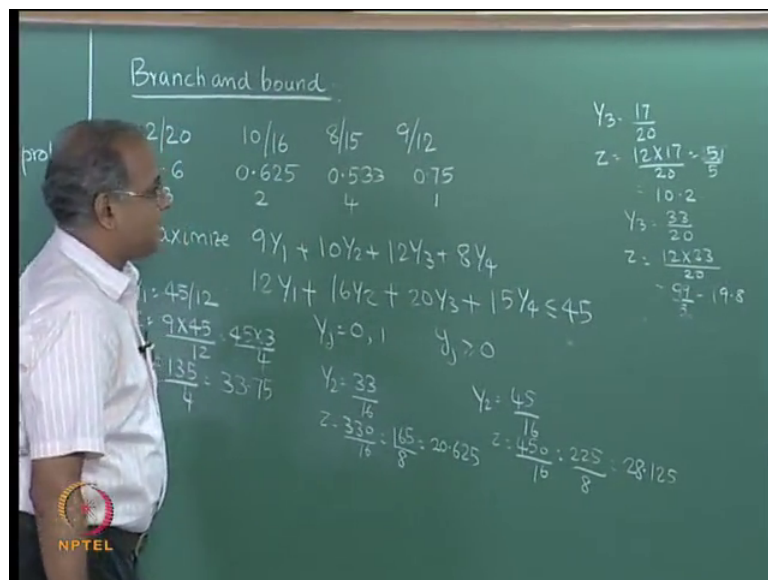 Branch and bound.
2/20 10/16 8/15 9/12
6 0.625 0.533 0.75
3 2 4 1
aximize 9Y1 + 10Y2 + 12Y3 + 8Y4
12Y1 + 16Y2 + 20Y3 + 15Y4 ≤ 45
Yj = 0, 1 yj ≥ 0
1 = 45/12
= 9×45/12 = 45×3/4
= 135/4 = 33.75
Y2 = 33/16
Z = 330/16 = 165/8 = 20.625
Y2 = 45/16
Z = 450/16 = 225/8 = 28.125
Y3 = 17/20
Z = 12×17/20 = 51/5
= 10.2
Y3 = 33/20
Z = 12×33/20
= 99/5 = 19.8
NPTEL